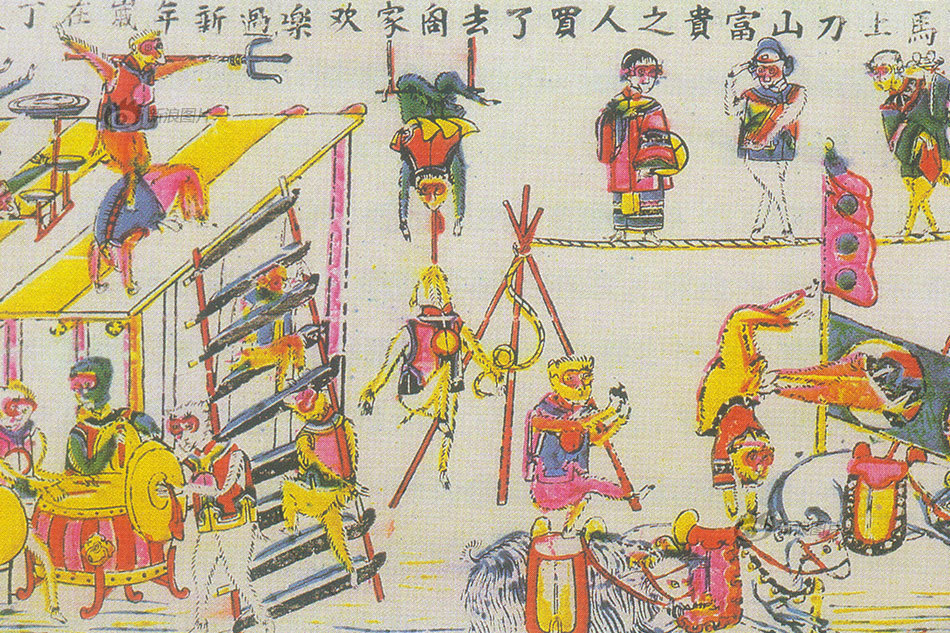 馬上刀山富貴之人買了去阖家欢樂過新年歲在丁
新浪图片